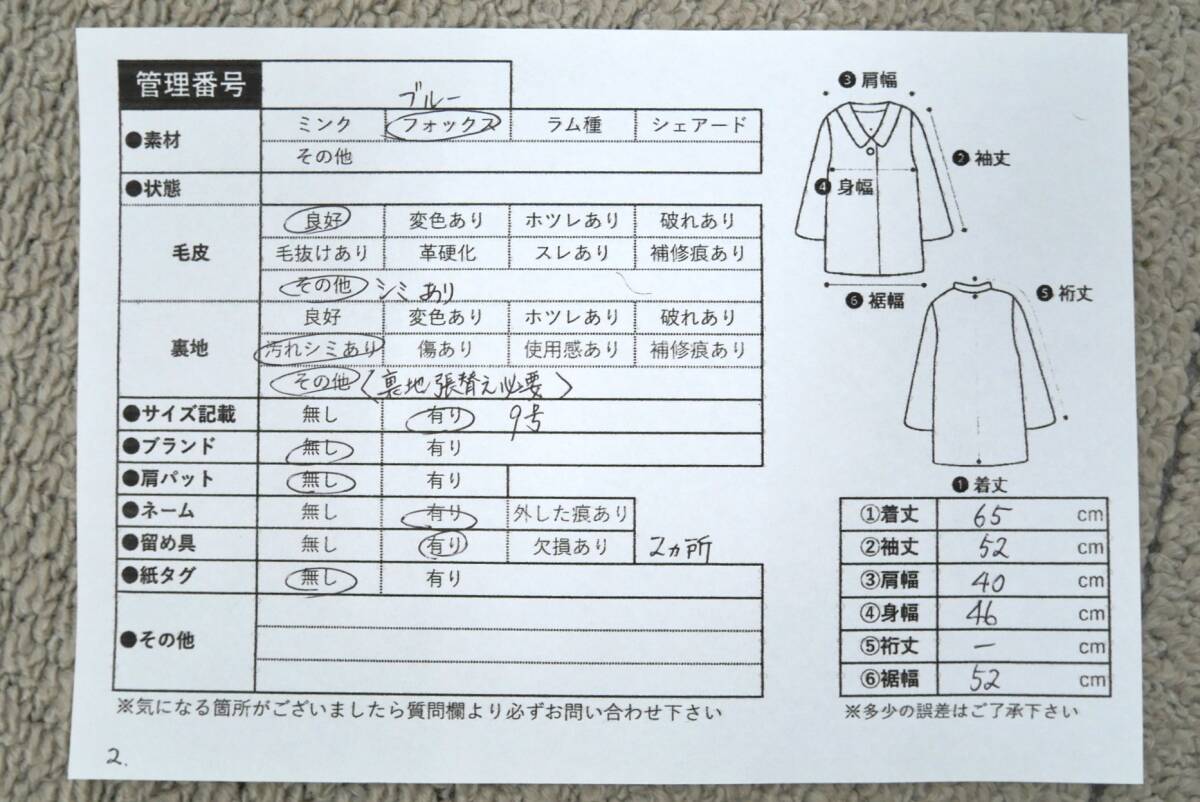 管理番号
ブルー
●素材 ミンク フォックス ラム種 シェアード
その他
●状態
毛皮 良好 変色あり ホツレあり 破れあり
毛抜けあり 革硬化 スレあり 補修痕あり
その他 シミあり
裏地 良好 変色あり ホツレあり 破れあり
汚れシミあり 傷あり 使用感あり 補修痕あり
その他 (裏地張替え必要)
●サイズ記載 無し 有り 9号
●ブランド 無し 有り
●肩パット 無し 有り
●ネーム 無し 有り 外した痕あり
●留め具 無し 有り 欠損あり 2ヵ所
●紙タグ 無し 有り
●その他
※気になる箇所がございましたら質問欄より必ずお問い合わせ下さい
2.
❸肩幅
❷袖丈
❹身幅
❻裾幅
❺裄丈
❶着丈
①着丈 65 cm
②袖丈 52 cm
③肩幅 40 cm
④身幅 46 cm
⑤裄丈 — cm
⑥裾幅 52 cm
※多少の誤差はご了承下さい